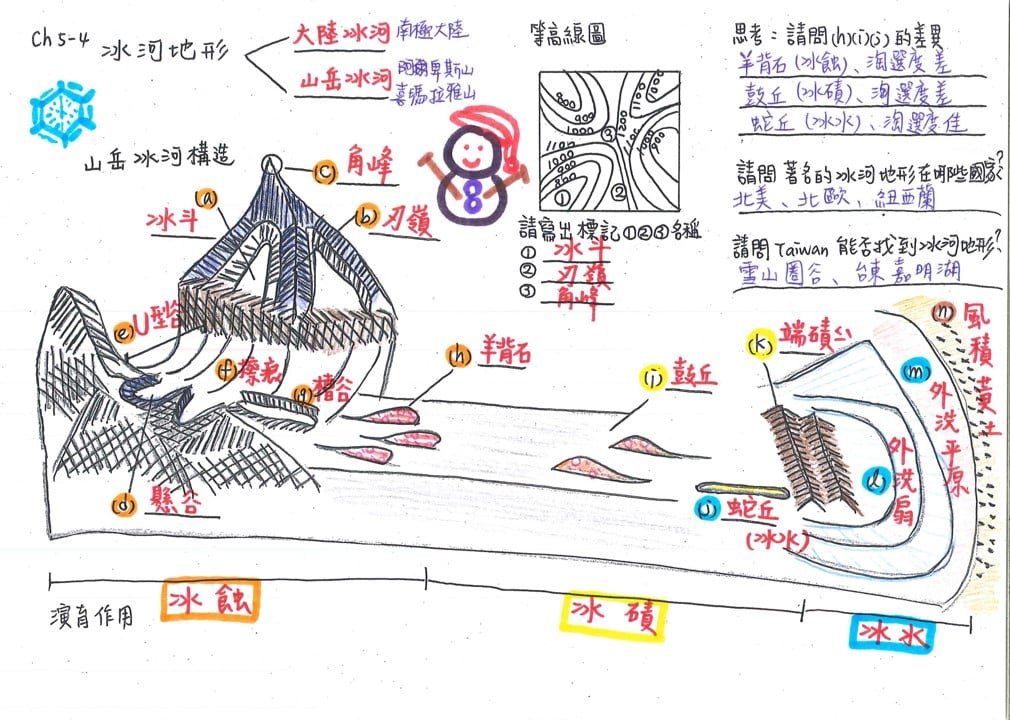 Ch5-4 冰河地形
大陸冰河 南極大陸
山岳冰河 阿爾卑斯山
喜瑪拉雅山
山岳冰河構造
(a)
冰斗
(c) 角峰
(b) 刃嶺
(e) U型谷
(f) 擦痕
(g) 槽谷
(d) 懸谷
(h) 羊背石
(i) 鼓丘
(j) 蛇丘
(冰水)
(k) 端磧
(l) 外洗扇
(m) 外洗平原
(n) 風積黃土
等高線圖
800
900
1000
1100
1200
1100
1000
900
1100
1000
900
800
①
②
③
請寫出標記①②③名稱
① 冰斗
② 刃嶺
③ 角峰
思考：請問(h)(i)(j)的差異
羊背石(冰蝕)、淘選度差
鼓丘(冰磧)、淘選度差
蛇丘(冰水)、淘選度佳
請問著名的冰河地形在哪些國家?
北美、北歐、紐西蘭
請問Taiwan能否找到冰河地形?
雪山圈谷、台東嘉明湖
8
演育作用
冰蝕
冰磧
冰水